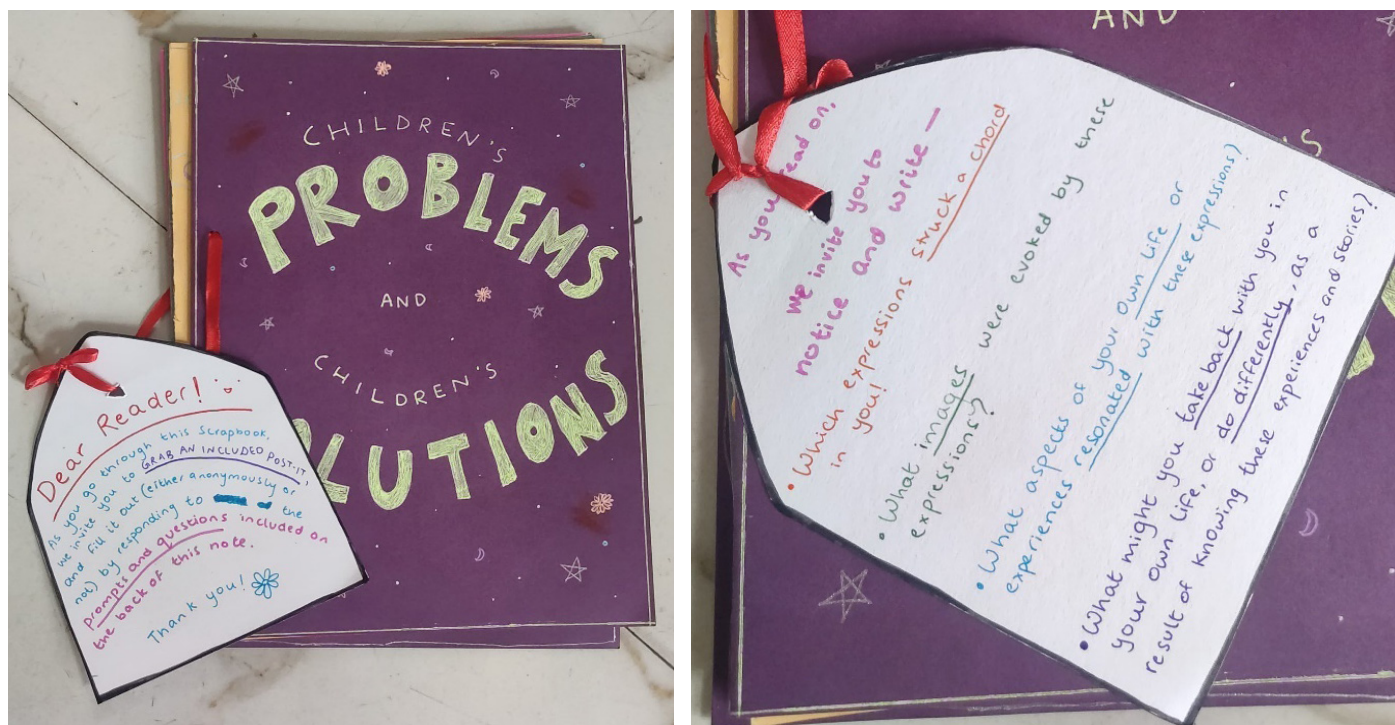 CHILDREN'S
PROBLEMS
AND
CHILDREN'S
LUTIONS
Dear Reader!
As you go through this scrapbook,
we invite you to GRAB AN INCLUDED POST-IT,
and fill it out (either anonymously or
not) by responding to the
prompts and questions included on
the back of this note.
Thank you!
AND
As you read on,
we invite you to
notice and write —
• Which expressions struck a chord
in you!
• What images were evoked by these
expressions?
• What aspects of your own life or
experiences resonated with these expressions?
• What might you take back with you in
your own life, or do differently, as a
result of knowing these experiences and stories?
'S